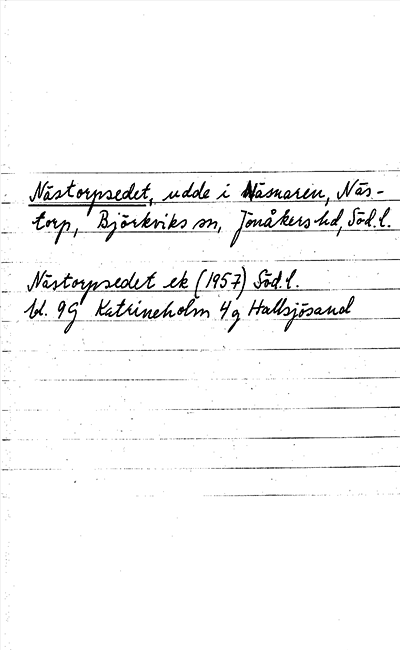 Nästorpsedet, udde i Näsnaren, Näs-
torp, Björkviks sn, Jönåkers hd, Söd.l.
Nästorpsedet ek (1957) Söd.l.
bl. 9G Katrineholm 4g Hallsjösand